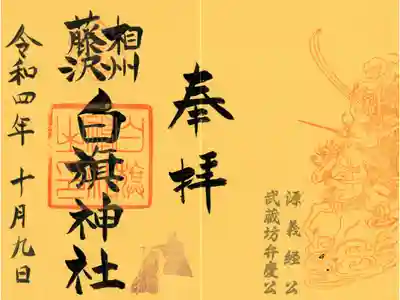 奉拝
源義経公
武蔵坊弁慶公
相州
藤沢
白旗神社
令和四年 十月九日